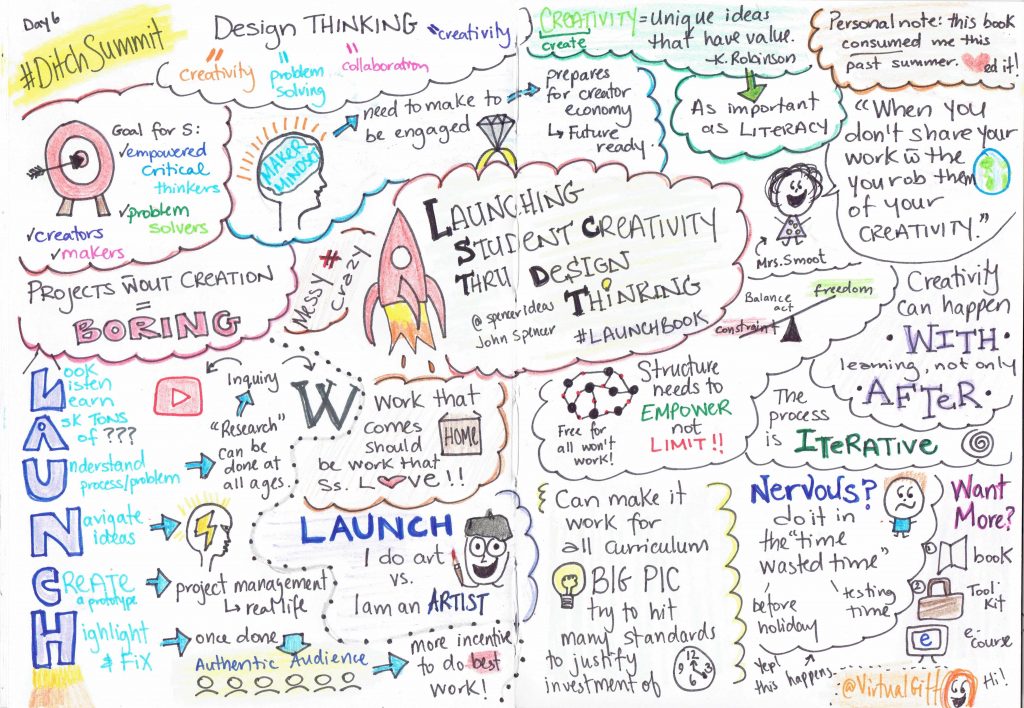 Day 6
#DitchSummit
Design THINKING
"creativity
creativity
problem
solving
collaboration
CREATIVITY = unique ideas
create
that have value.
-K. Robinson
Personal note: this book
consumed me this
past summer. ed it!
Goal for S:
✓empowered
critical
thinkers
✓problem
solvers
✓creators
✓makers
MAKER
MINDSET
need to make to
be engaged
prepares
for creator
economy
↳ Future
ready
As important
as LITERACY
"When you
don't share your
work w the
you rob them
of your
CREATIVITY."
Mrs. Smoot
PROJECTS W/OUT CREATION
=
BORING
Messy ≠ Crazy
LAUNCHING
STUDENT CREATIVITY
THRU DESIGN
THINKING
@spencerideas
John Spencer
#LAUNCHBOOK
Balance
act
freedom
constraint
Creativity
can happen
·WITH·
learning, not only
·AFTER·
Look
Listen
Learn
Ask TONS
of ???
Understand
process/problem
Navigate
ideas
CREATE
a prototype
Highlight
& Fix
Inquiry
"Research"
can be
done at
all ages.
W
project management
↳ real life
once done
Authentic Audience
more incentive
to do best
work!
Work that
comes HOME
should
be work that
Ss. Love!!
LAUNCH
I do art
vs.
I am an ARTIST
Free for
all won't
work!
Structure
needs to
EMPOWER
not
LIMIT!!
The
process
is ITERATIVE
Can make it
work for
all curriculum
BIG PIC
try to hit
many standards
to justify
investment of
12
3
6
9
Nervous?
do it in
the "time
wasted time"
before
holiday
testing
time
Yep!
this happens.
Want
More?
1 book
2 Tool
Kit
3 e-
course
e
@VirtualGiff
Hi!